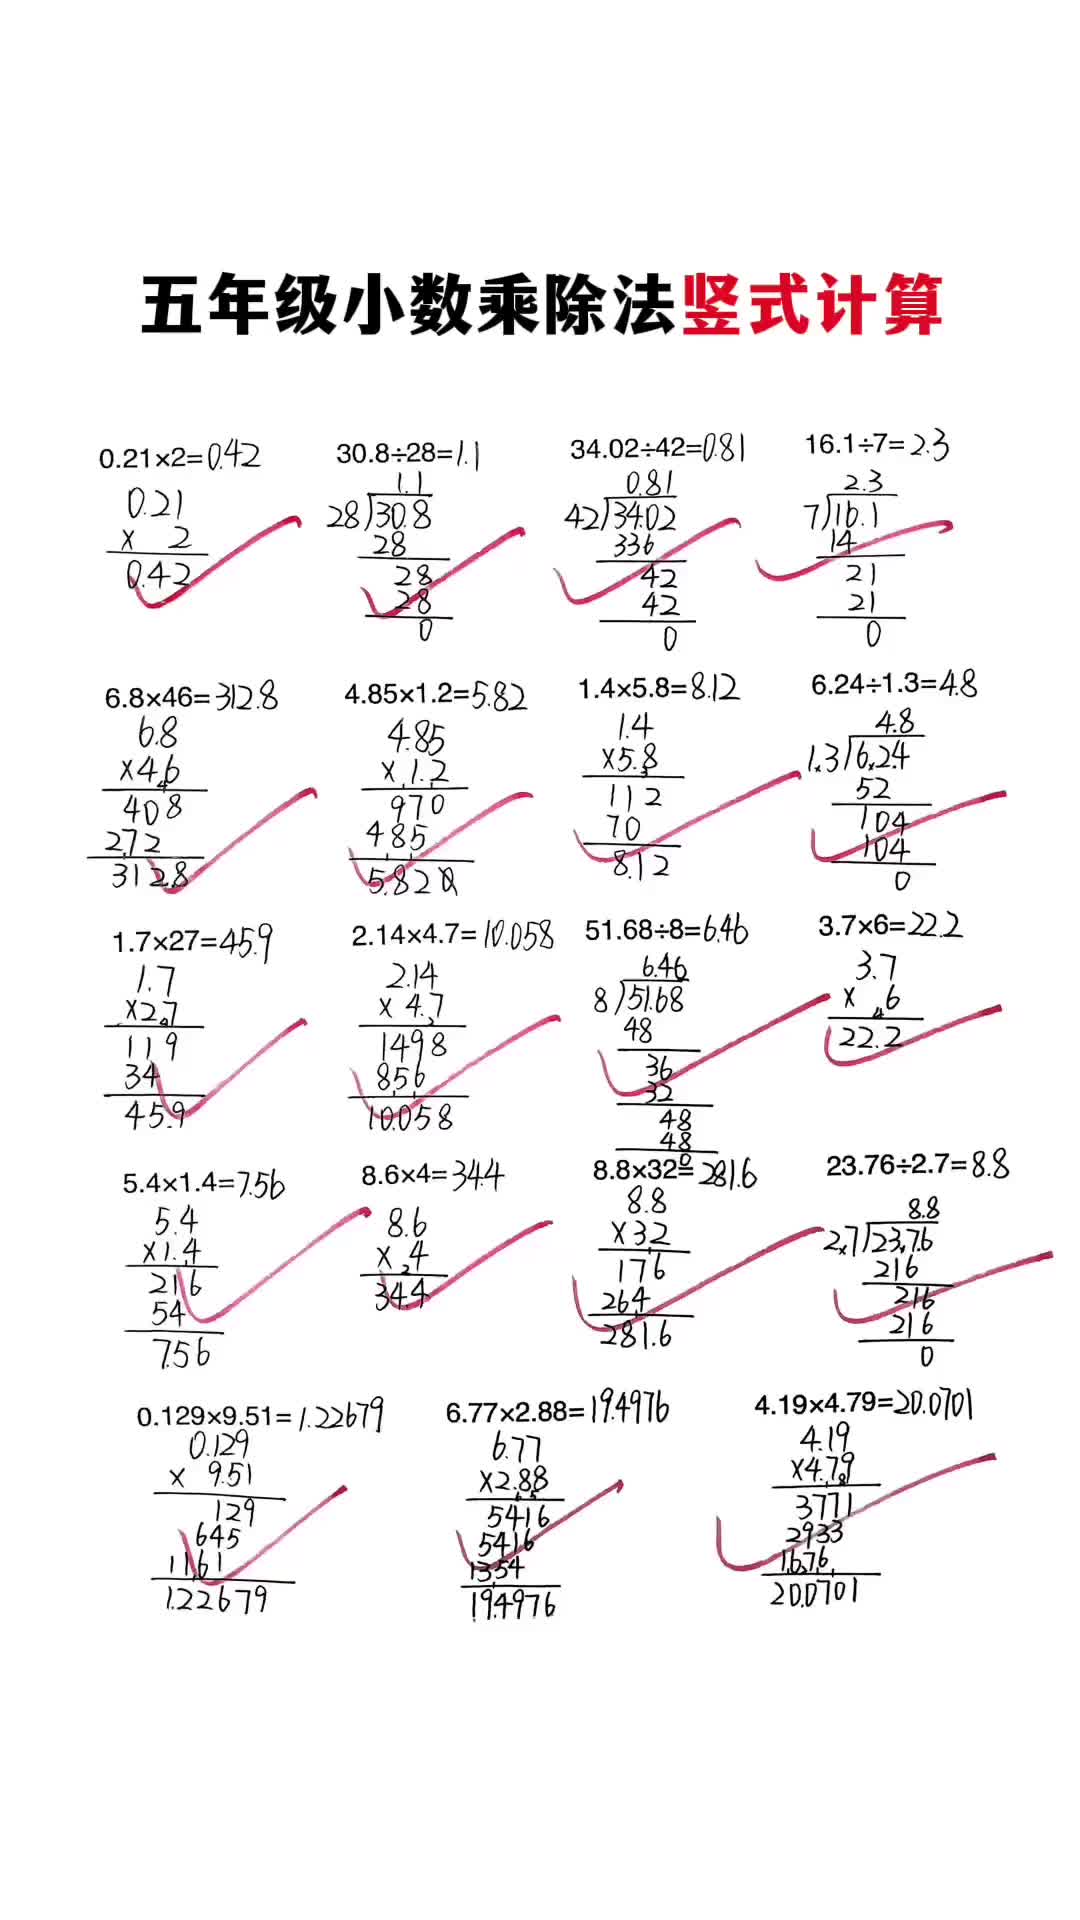 五年级小数乘除法竖式计算
0.21×2=0.42
0.21
× 2
0.42
30.8÷28=1.1
1.1
28)30.8
28
28
28
0
34.02÷42=0.81
0.81
42)34.02
336
42
42
0
16.1÷7=2.3
2.3
7)16.1
14
21
21
0
6.8×46=312.8
6.8
×46
408
272
312.8
4.85×1.2=5.82
4.85
×1.2
970
485
5.820
1.4×5.8=8.12
1.4
×5.8
112
70
8.12
6.24÷1.3=4.8
4.8
1.3)6.24
52
104
104
0
1.7×27=45.9
1.7
×27
119
34
45.9
2.14×4.7=10.058
2.14
× 4.7
1498
856
10.058
51.68÷8=6.46
6.46
8)51.68
48
36
32
48
48
0
3.7×6=22.2
3.7
× 6
22.2
5.4×1.4=7.56
5.4
×1.4
216
54
7.56
8.6×4=34.4
8.6
× 4
34.4
8.8×32=281.6
8.8
×32
176
264
281.6
23.76÷2.7=8.8
8.8
2.7)23.76
216
216
216
0
0.129×9.51=1.22679
0.129
× 9.51
129
645
1161
1.22679
6.77×2.88=19.4976
6.77
×2.88
5416
5416
1354
19.4976
4.19×4.79=20.0701
4.19
×4.79
3771
2933
1676
20.0701